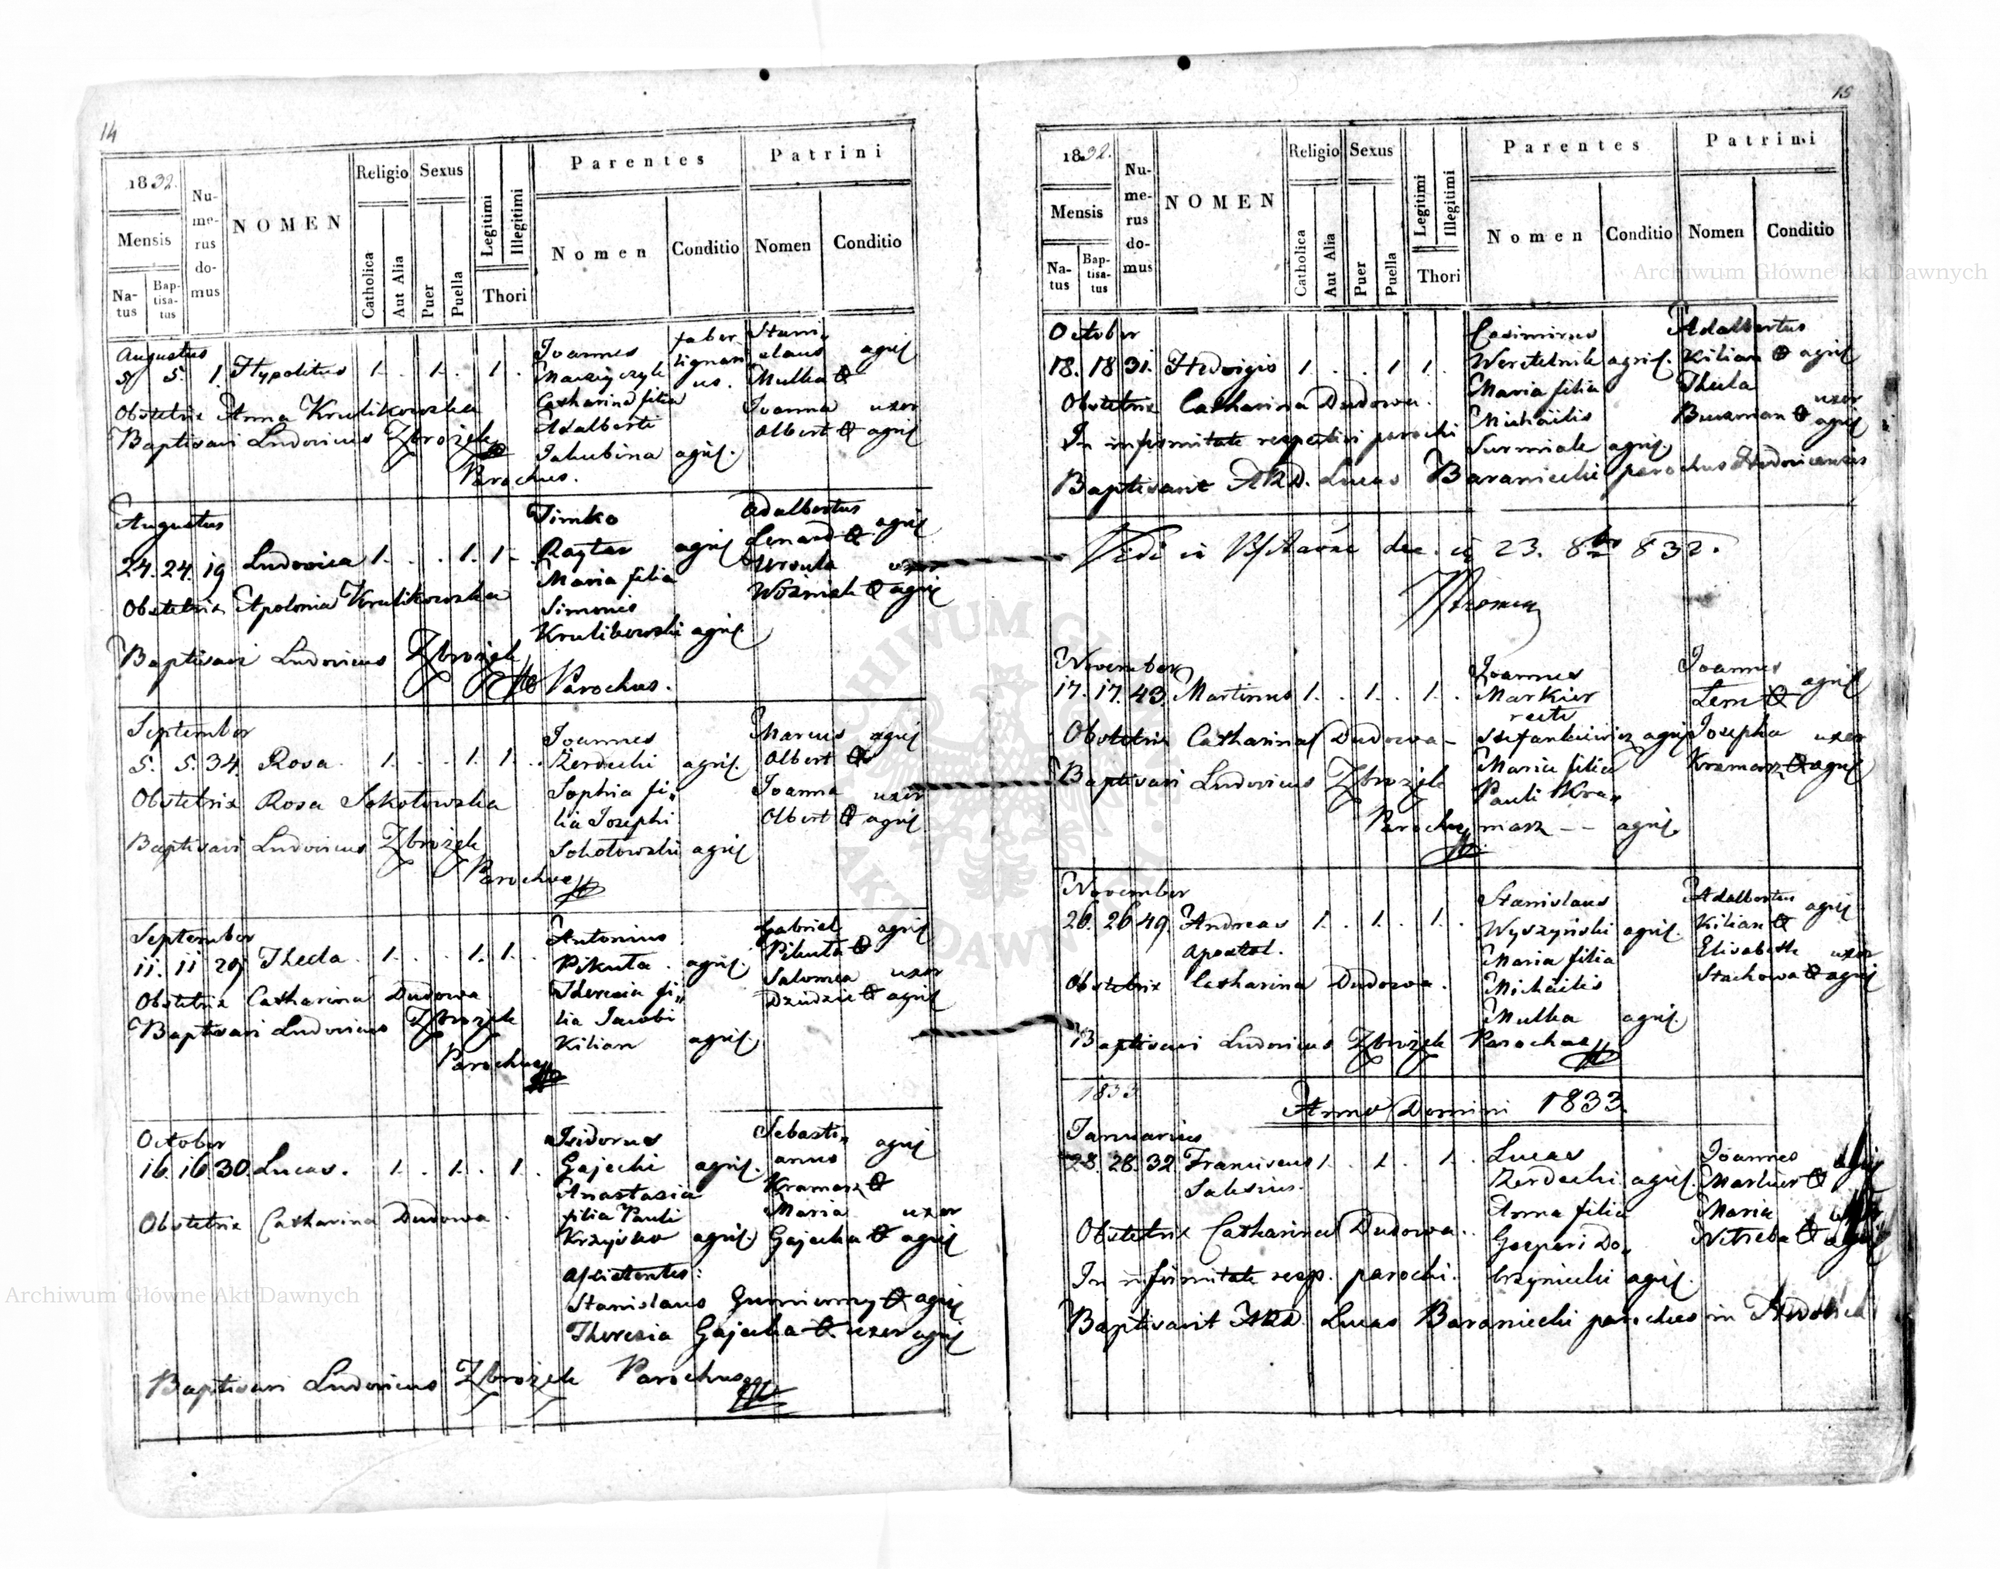 14
1832.
Mensis
Natus
Baptisatus
Numerus domus
NOMEN
Religio
Catholica
Aut Alia
Sexus
Puer
Puella
Legitimi
Illegitimi
Thori
Parentes
Nomen
Conditio
Patrini
Nomen
Conditio
Augustus
5 5. 1. Hypolitus 1. . 1. . 1. .
Obstetrix Anna Krulikowska
Baptisavi Ludovicus Zbrożek
Parochus.
Joannes
faber
lignari
us.
Catharina filia
Adalberti
Jakubina agric.
Stani,,
slaus agric
Mulka
Joanna uxor
Olbert agric
Augustus
24. 24. 19 Ludovica 1. . . 1. 1 -
Obstetrix Apolonia Krulikowska
Baptisavi Ludovicus Zbrożek
Parochus.
Timko
Raytar agric
Maria filia
Simonis
Krulikowski agric.
Adalbertus
Lenard agric
Ursula uxor
Woźniak agric
September
5. 5. 34. Rosa. 1. . . 1. 1. .
Obstetrix Rosa Sokołowska
Baptisavi Ludovicus Zbrożek
Parochus
Joannes
Zerdecki agric.
Sophia fi,,
lia Josephi
Sokołowski agric
Marcus agric
Olbert
Joanna uxor
Olbert agric
September
11. 11 29 Thecla. 1. . . 1. 1. .
Obstetrix Catharina Dudowa
Baptisavi Ludovicus Zbrożek
Parochus
Antonius
Pikuta. agric.
Theresia fi,,
lia Jacobi
Kilian agric.
Gabriel agric
Pikuta
Salomea uxor
Dziudzie agric
October
16. 16 30. Lucas. 1. . 1. . 1. .
Obstetrix Catharina Dudowa.
Isidorus
Gajecki agric.
Anastasia
filia Pauli
agric.
Sebasti,,
anus agric
Kramarz
Maria uxor
Gajecka agric
Assistentes:
Stanislaus Gumienny agric
Theresia Gajecka uxor agric
Baptisavi Ludovicus Zbrożek Parochus
15
1832.
Mensis
Natus
Baptisatus
Numerus domus
NOMEN
Religio
Catholica
Aut Alia
Sexus
Puer
Puella
Legitimi
Illegitimi
Thori
Parentes
Nomen
Conditio
Patrini
Nomen
Conditio
October
18. 18 31. Hedvigis 1. . . 1 1. .
Obstetrix Catharina Dudowa.
In infirmitate respectivi parochi
Baptisavit ARD. Lucas Baraniecki parochus Hodovicensis
Casimirus
agric.
Maria filia
Michaëlis
Surmiak agric.
Adalbertus
Kilian agric
Thecla
uxor
agric
Vidi in dec. 23. 8bris 832.
November
17. 17. 43. Martinus 1. . 1. . 1. .
Obstetrix Catharina Dudowa -
Baptisavi Ludovicus Zbrożek
Parochus
Joannes
Markier
recte
Stefankiewicz agric
Maria filia
Pauli Kra,,
marz - - agric.
Joannes
agric
Josepha uxor
Kramarz agric
November
26. 26 49. Andreas 1. . 1. . 1. .
apostol.
Obstetrix Catharina Dudowa.
Baptisavi Ludovicus Zbrożek Parochus
Stanislaus
Wyszyński agric.
Maria filia
Michaëlis
Mulka agric
Adalbertus agric
Kilian
Elisabeth uxor
Stachowa agric
1833
Anno Domini 1833.
Januarius
28. 28. 32. Franciscus 1. . 1. . 1. .
Salesius.
Obstetrix Catharina Dudowa.
In infirmitate resp. parochi.
Baptisavit ARD. Lucas Baraniecki parochus in Hodovica
Lucas
Zerdecki agric.
Anna filia
Gasperi Do,,
brzyniecki agric.
Joannes
Markier
Maria
Archiwum Główne Akt Dawnych
Archiwum Główne Akt Dawnych
ARCHIWUM GŁÓWNE AKT DAWNYCH